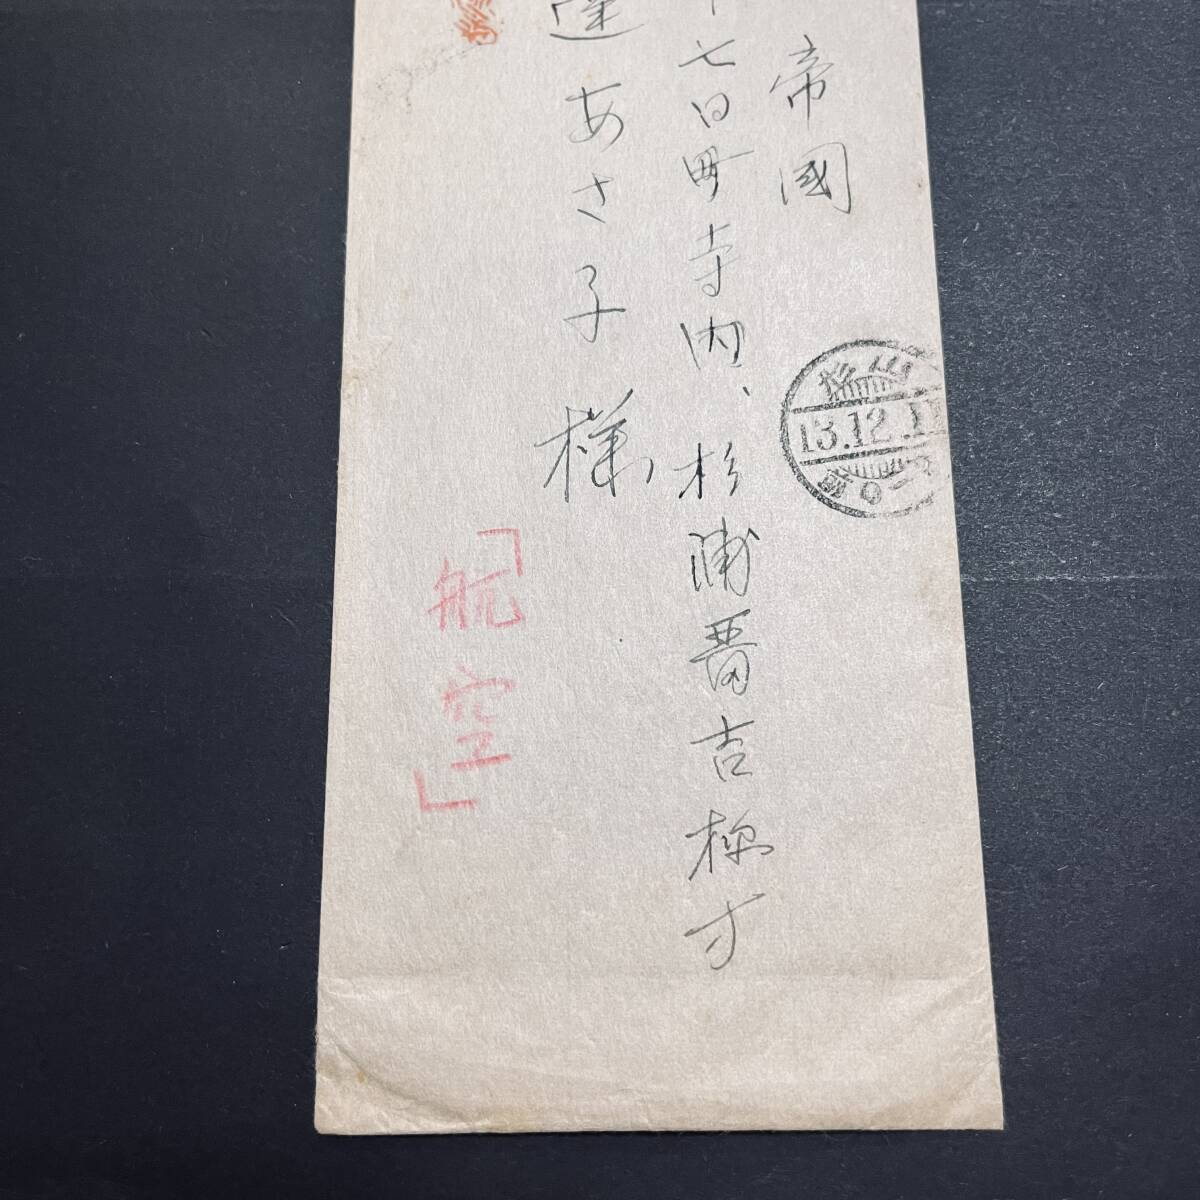 帝國
七日町寺内、杉浦晋吉様方
達あさ子様
「航空」
13.12.1